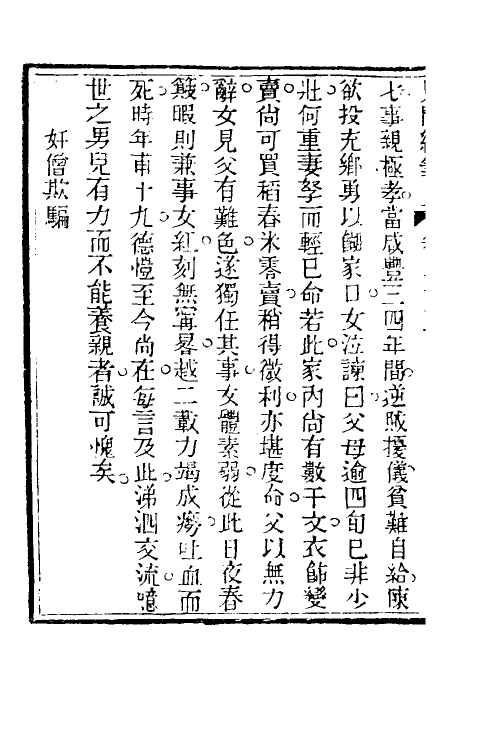 七事親極孝當咸豐三四年間逆賊擾儀貧難自給陳
欲投充鄉勇以餬家口女泣諫曰父母逾四旬已非少
壯何重妻孥而輕已命若此家內尚有數千文衣飾變
賣尚可買稻舂米零賣稍得微利亦堪度命父以無力
辭女見父有難色遂獨任其事女體素弱從此日夜舂
簸暇則兼事女紅刻無寗晷越二載力竭成癆吐血而
死時年甫十九德愷至今尚在每言及此涕泗交流噫
世之男兒有力而不能養親者誠可愧矣
奸僧欺騙